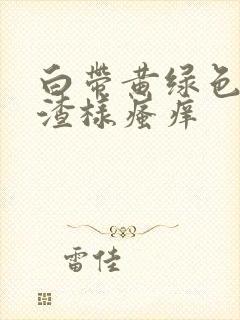 白带黄绿色
渣样瘙痒
雷佳